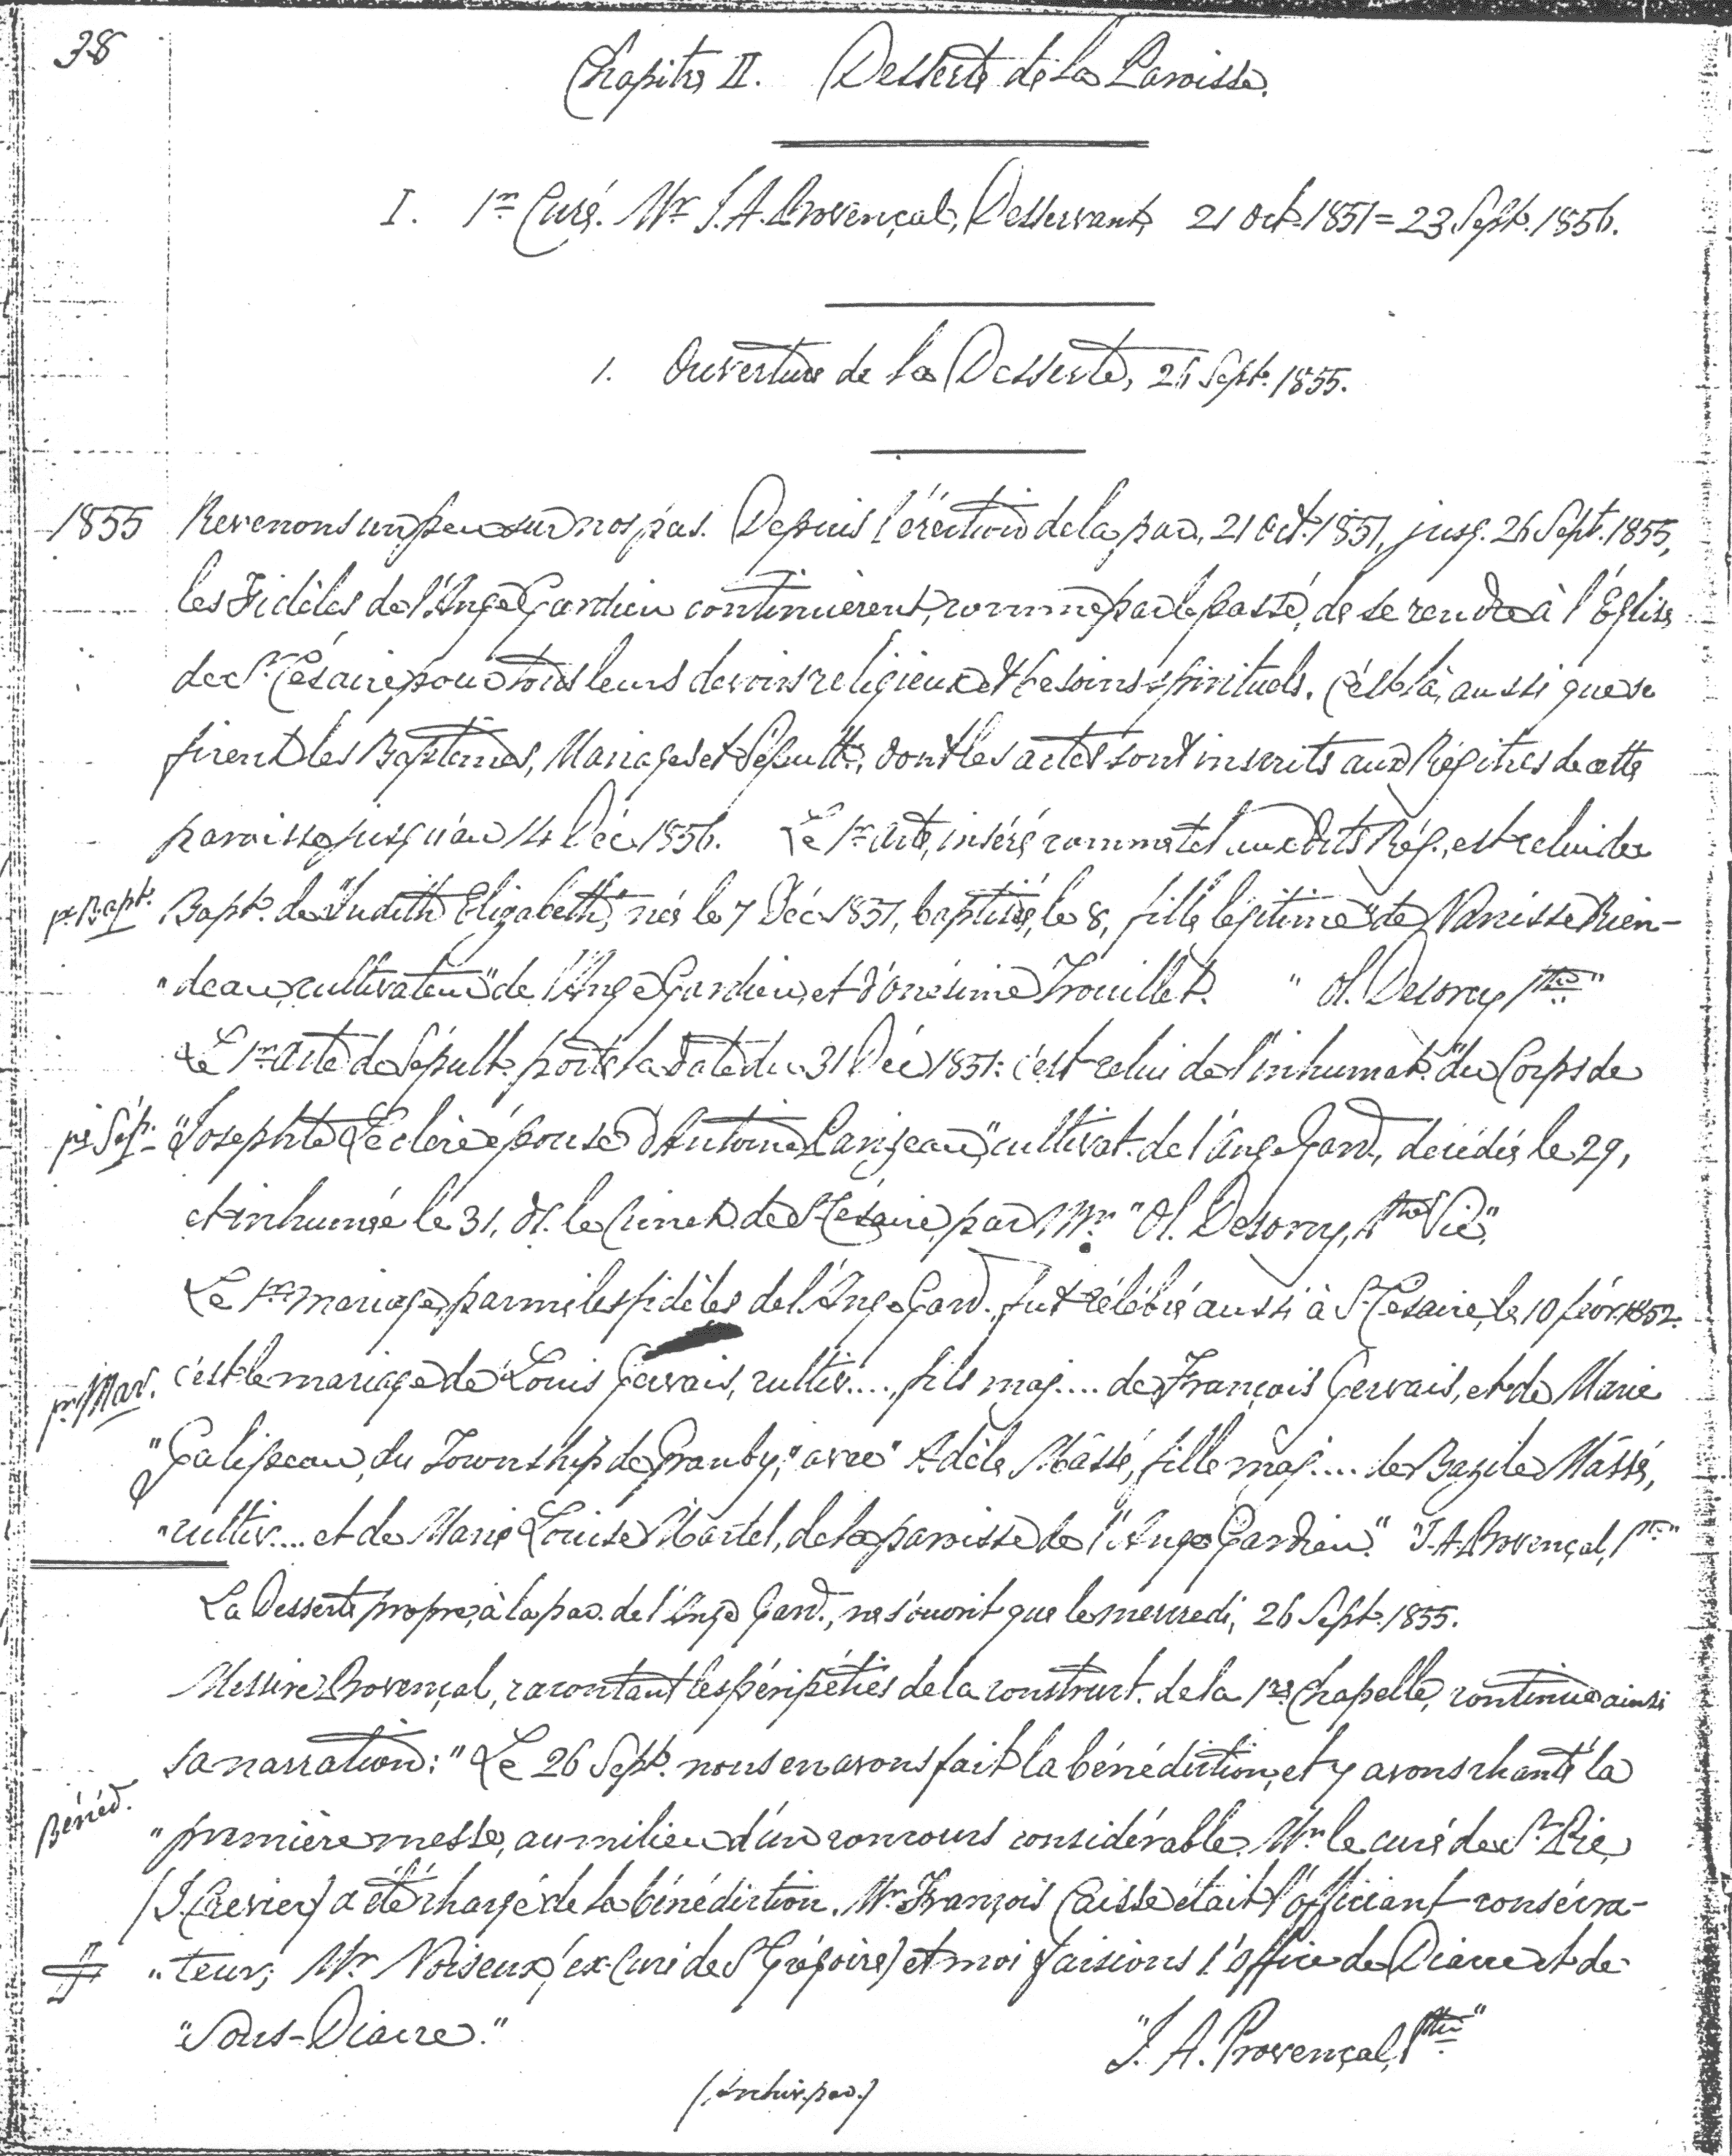 38
Chapitre II. Desserte de la Paroisse.
I. 1er Curé. Mr J. A. Provençal, Desservant, 21 Oct. 1851 = 23 Sept. 1856.
1. Ouverture de la Desserte, 26 Sept. 1855.
1855 Revenons un peu sur nos pas. Depuis l'érection de la par., 21 Oct. 1851, jusq. 26 Sept. 1855,
les Fidèles de l'Ange Gardien continuèrent, comme par le passé, de se rendre à l'Église
de St Césaire, pour tous leurs devoirs religieux et besoins spirituels. C'est là, aussi que se
firent les Baptêmes, Mariages et Sépult., dont les actes sont inscrits aux Régitres de cette
paroisse jusqu'au 14 Déc. 1856. Le 1er acte, inséré comme tel aux dits Rég., est celui du
pr. Bapt. Bapt. de "Judith Elizabeth," née le 7 Déc. 1851, baptisée, le 8, fille légitime "de Narcisse Rien-
"deau, cultivateur" de l'Ange Gardien, et d'Onésime Trouillet. " Ol. Desorcy Ptre "
Le 1er acte de Sépult. porte la date du 31 Déc. 1851: c'est celui de l'inhumat. "du Corps de
pr Sép. "Josephte Leclerc épouse d'Antoine Lanjeau," cultivat. de l'Ange Gard., décédée le 29,
et inhumée le 31, ds. le Cimet. de St Césaire, par Mr. "Ol. Desorcy, Ptre Vic."
Le 1er mariage, parmi les fidèles de l'Ange Gard. fut célébré aussi à St Césaire, le 10 févr. 1852.
pr. Mar. c'est le mariage de "Louis Gervais, cultiv...., fils maj.... de François Gervais, et de Marie
"Galipeau, du Township de Granby," avec "Adèle Mâssé, fille maj.... de Bazile Mâssé,
"cultiv.... et de Marie Louise Martel, de la paroisse de l'Ange Gardien." "J. A. Provençal, Ptre"
La Desserte propre, à la par. de l'Ange Gard., ne s'ouvrit que le mercredi, 26 Sept. 1855.
Messire Provençal, racontant les péripéties de la construct. de la 1re Chapelle, continue ainsi
sa narration: "Le 26 Sept. nous en avons fait la bénédiction, et y avons chanté la
Bénéd. "première messe, au milieu d'un concours considérable. Mr. le curé de St Pie,
(J. Crevier) a été chargé de la bénédiction. Mr. François Caisse était l'officiant consécra-
"teur; Mr Noiseux, (ex-Curé de St Grégoire) et moi faisions l'Office de Diacre et de
"Sous-Diacre." "J. A. Provençal, Ptre"
(Archiv. par.)